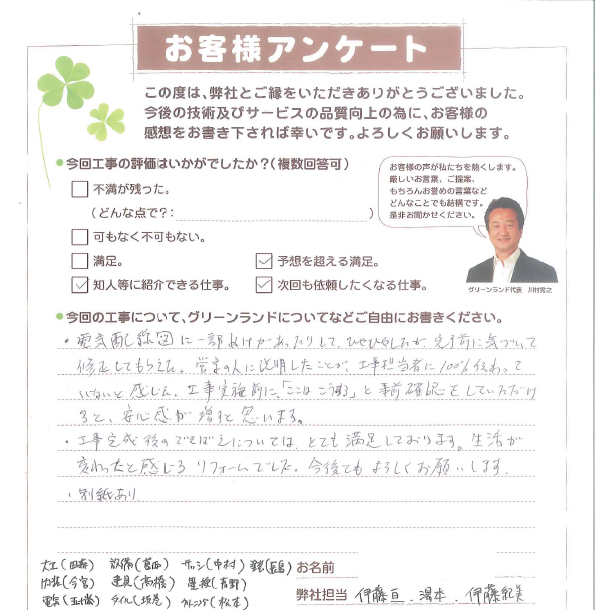 お客様アンケート
この度は、弊社とご縁をいただきありがとうございました。
今後の技術及びサービスの品質向上の為に、お客様の
感想をお書き下されば幸いです。よろしくお願いします。
●今回工事の評価はいかがでしたか?(複数回答可)
不満が残った。
(どんな点で?: )
可もなく不可もない。
満足。
予想を超える満足。
知人等に紹介できる仕事。
次回も依頼したくなる仕事。
お客様の声が私たちを熱くします。
厳しいお言葉、ご提案、
もちろんお誉めの言葉など
どんなことでも結構です。
是非お聞かせください。
グリーンランド代表 川村秀之
●今回の工事について、グリーンランドについてなどご自由にお書きください。
・電気配線図に一部よけがあったりして、ひやひやしたが、完了前に気づいて
修正してもらえた。営業の人に説明したことが、工事担当者に100%伝わって
いないと感じた。工事実施前に、「ここは こうする」と事前確認をしていただけ
ると、安心感が増すと思います。
・工事完成後のできばえについては、とても満足しております。生活が
変わったと感じるリフォームでした。今後ともよろしくお願いします。
・別紙あり
大工(田森) 設備(葛西) サッシ(中村)
内装(今宮) 建具(高橋) 屋根(吉野)
電気(五十嵐) タイル(坂巻) クリーニング(松本)
お名前
弊社担当 伊藤亘、湯本、伊藤記美